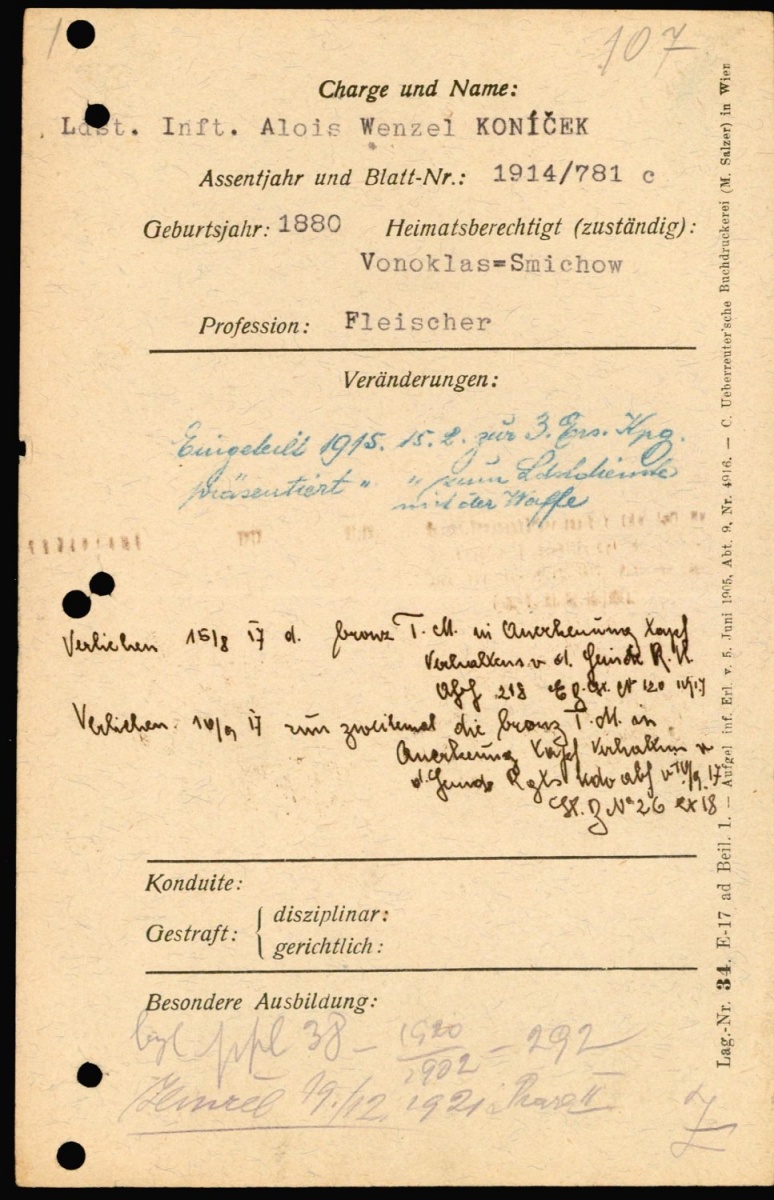 107
Charge und Name:
Ldst. Inft. Alois Wenzel KONÍČEK
Assentjahr und Blatt-Nr.: 1914/781 c
Geburtsjahr: 1880 Heimatsberechtigt (zuständig):
Vonoklas=Smichow
Profession: Fleischer
Veränderungen:
Eingeteilt 1915. 15.2. zur 3. Ers. Kpg.
präsentiert " " zum Ldstdienste
mit der Waffe
Verliehen 15/8 17 d. bronz T. M. in Anerkenung
Verhaltens v. d.
218 No 120
Verliehen 17 zum zweitemal die bronz T. M. in
Anerkenung
No 26 ex 18
Konduite:
Gestraft: { disziplinar:
gerichtlich:
Besondere Ausbildung:
ppl 38 – 1920/1902 = 292
Zemřel 19./12. 1921
Lag.-Nr. 34. E-17 ad Beil. 1. — Aufgel. inf. Erl. v. 5. Juni 1905, Abt. 9, Nr. 4916. — C. Ueberreuter'sche Buchdruckerei (M. Salzer) in Wien